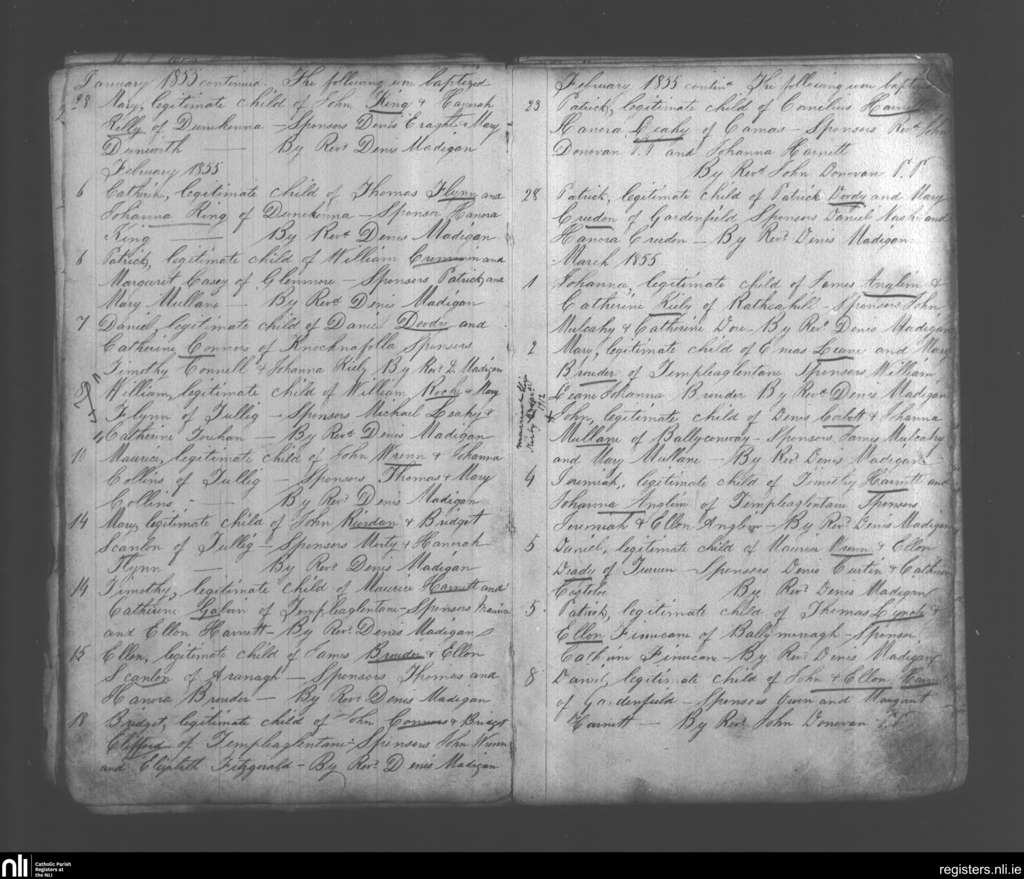 January 1855 continued. The following were baptized
28 Mary, legitimate child of John King &
Kelly of Dunkenna – Sponsors Denis Eraght & Mary
Dunworth — By Revd Denis Madigan
February 1855
6 Cathrin, legitimate child of Thomas Flynn and
Johanna Ring of Dunkenna – Sponsor Hanora
King — By Revd Denis Madigan
6 Patrick, legitimate child of William and
Margaret Casey of Glenmore – Sponsors Patrick and
Mary Mullane – By Revd Denis Madigan
7 Daniel, legitimate child of Daniel Doody and
Catherine Connors of Knocknafolla Sponsors
Timothy Connell & Johanna Riely By Revd D. Madigan
8 William, legitimate child of William Roche & Mary
Flynn of Tullig – Sponsors Michael Leahy &
Catherine – By Revd Denis Madigan
10 Maurice, legitimate child of John Wrenn & Johanna
Collins of Tullig – Sponsors Thomas & Mary
Collins – By Revd Denis Madigan
14 Mary, legitimate child of John Riordan & Bridget
Scanlon of Tullig – Sponsors Morty & Hanorah
Flynn — By Revd Denis Madigan
14 Timothy, legitimate child of Maurice Harnett and
Catherine of Templeaglentane – Sponsors Maurice
and Ellen Harnett – By Revd Denis Madigan
15 Ellen, legitimate child of James Brouder & Ellen
Scanlon of Aranagh – Sponsors Thomas and
Hanora Brouder – By Revd Denis Madigan
18 Bridget, legitimate child of John Connors & Bridget
Clifford of Templeaglentane – Sponsors John Wrenn
and Elizabeth Fitzgerald – By Revd Denis Madigan
February 1855 contind The following were baptized
23 Patrick, legitimate child of Cornelius
Hanora Leahy of Camas – Sponsors Revd John
Donovan P.P and Johanna Harnett
By Revd John Donovan P.P
28 Patrick, legitimate child of Patrick Doody and Mary
Creedon of Gardenfield Sponsors Daniel Nash and
Hanora Creedon – By Revd Denis Madigan
March 1855
1 Johanna, legitimate child of James Anglim &
Catherine Riely of Rathcahill – Sponsors John
Mulcahy & Catherine Dore – By Revd Denis Madigan
2 Mary, legitimate child of Leane and Mary
Brouder of Templeaglentane Sponsors William
Leane Johanna Brouder By Revd Denis Madigan
John, legitimate child of Denis & Johanna
Mullane of Ballyconway – Sponsors James Mulcahy
and Mary Mullane – By Revd Denis Madigan
4 Jeremiah, legitimate child of Timothy Harnett and
Johanna Anglim of Templeaglentane Sponsors
Jeremiah & Ellen Anglim – By Revd Denis Madigan
5 Daniel, legitimate child of Maurice Wrenn & Ellen
Deady of Tureen – Sponsors Denis Curtin & Catherine
Costelloe By Revd Denis Madigan
5 Patrick, legitimate child of Thomas Lynch &
Ellen Finucane of Ballymurragh – Sponsor
Catherine Finucane – By Revd Denis Madigan
8 Daniel, legitimate child of John & Ellen
of Gardenfield – Sponsors Owen and Margaret
Harnett — By Revd John Donovan P.P
nli
Catholic Parish
Registers at
the NLI
registers.nli.ie